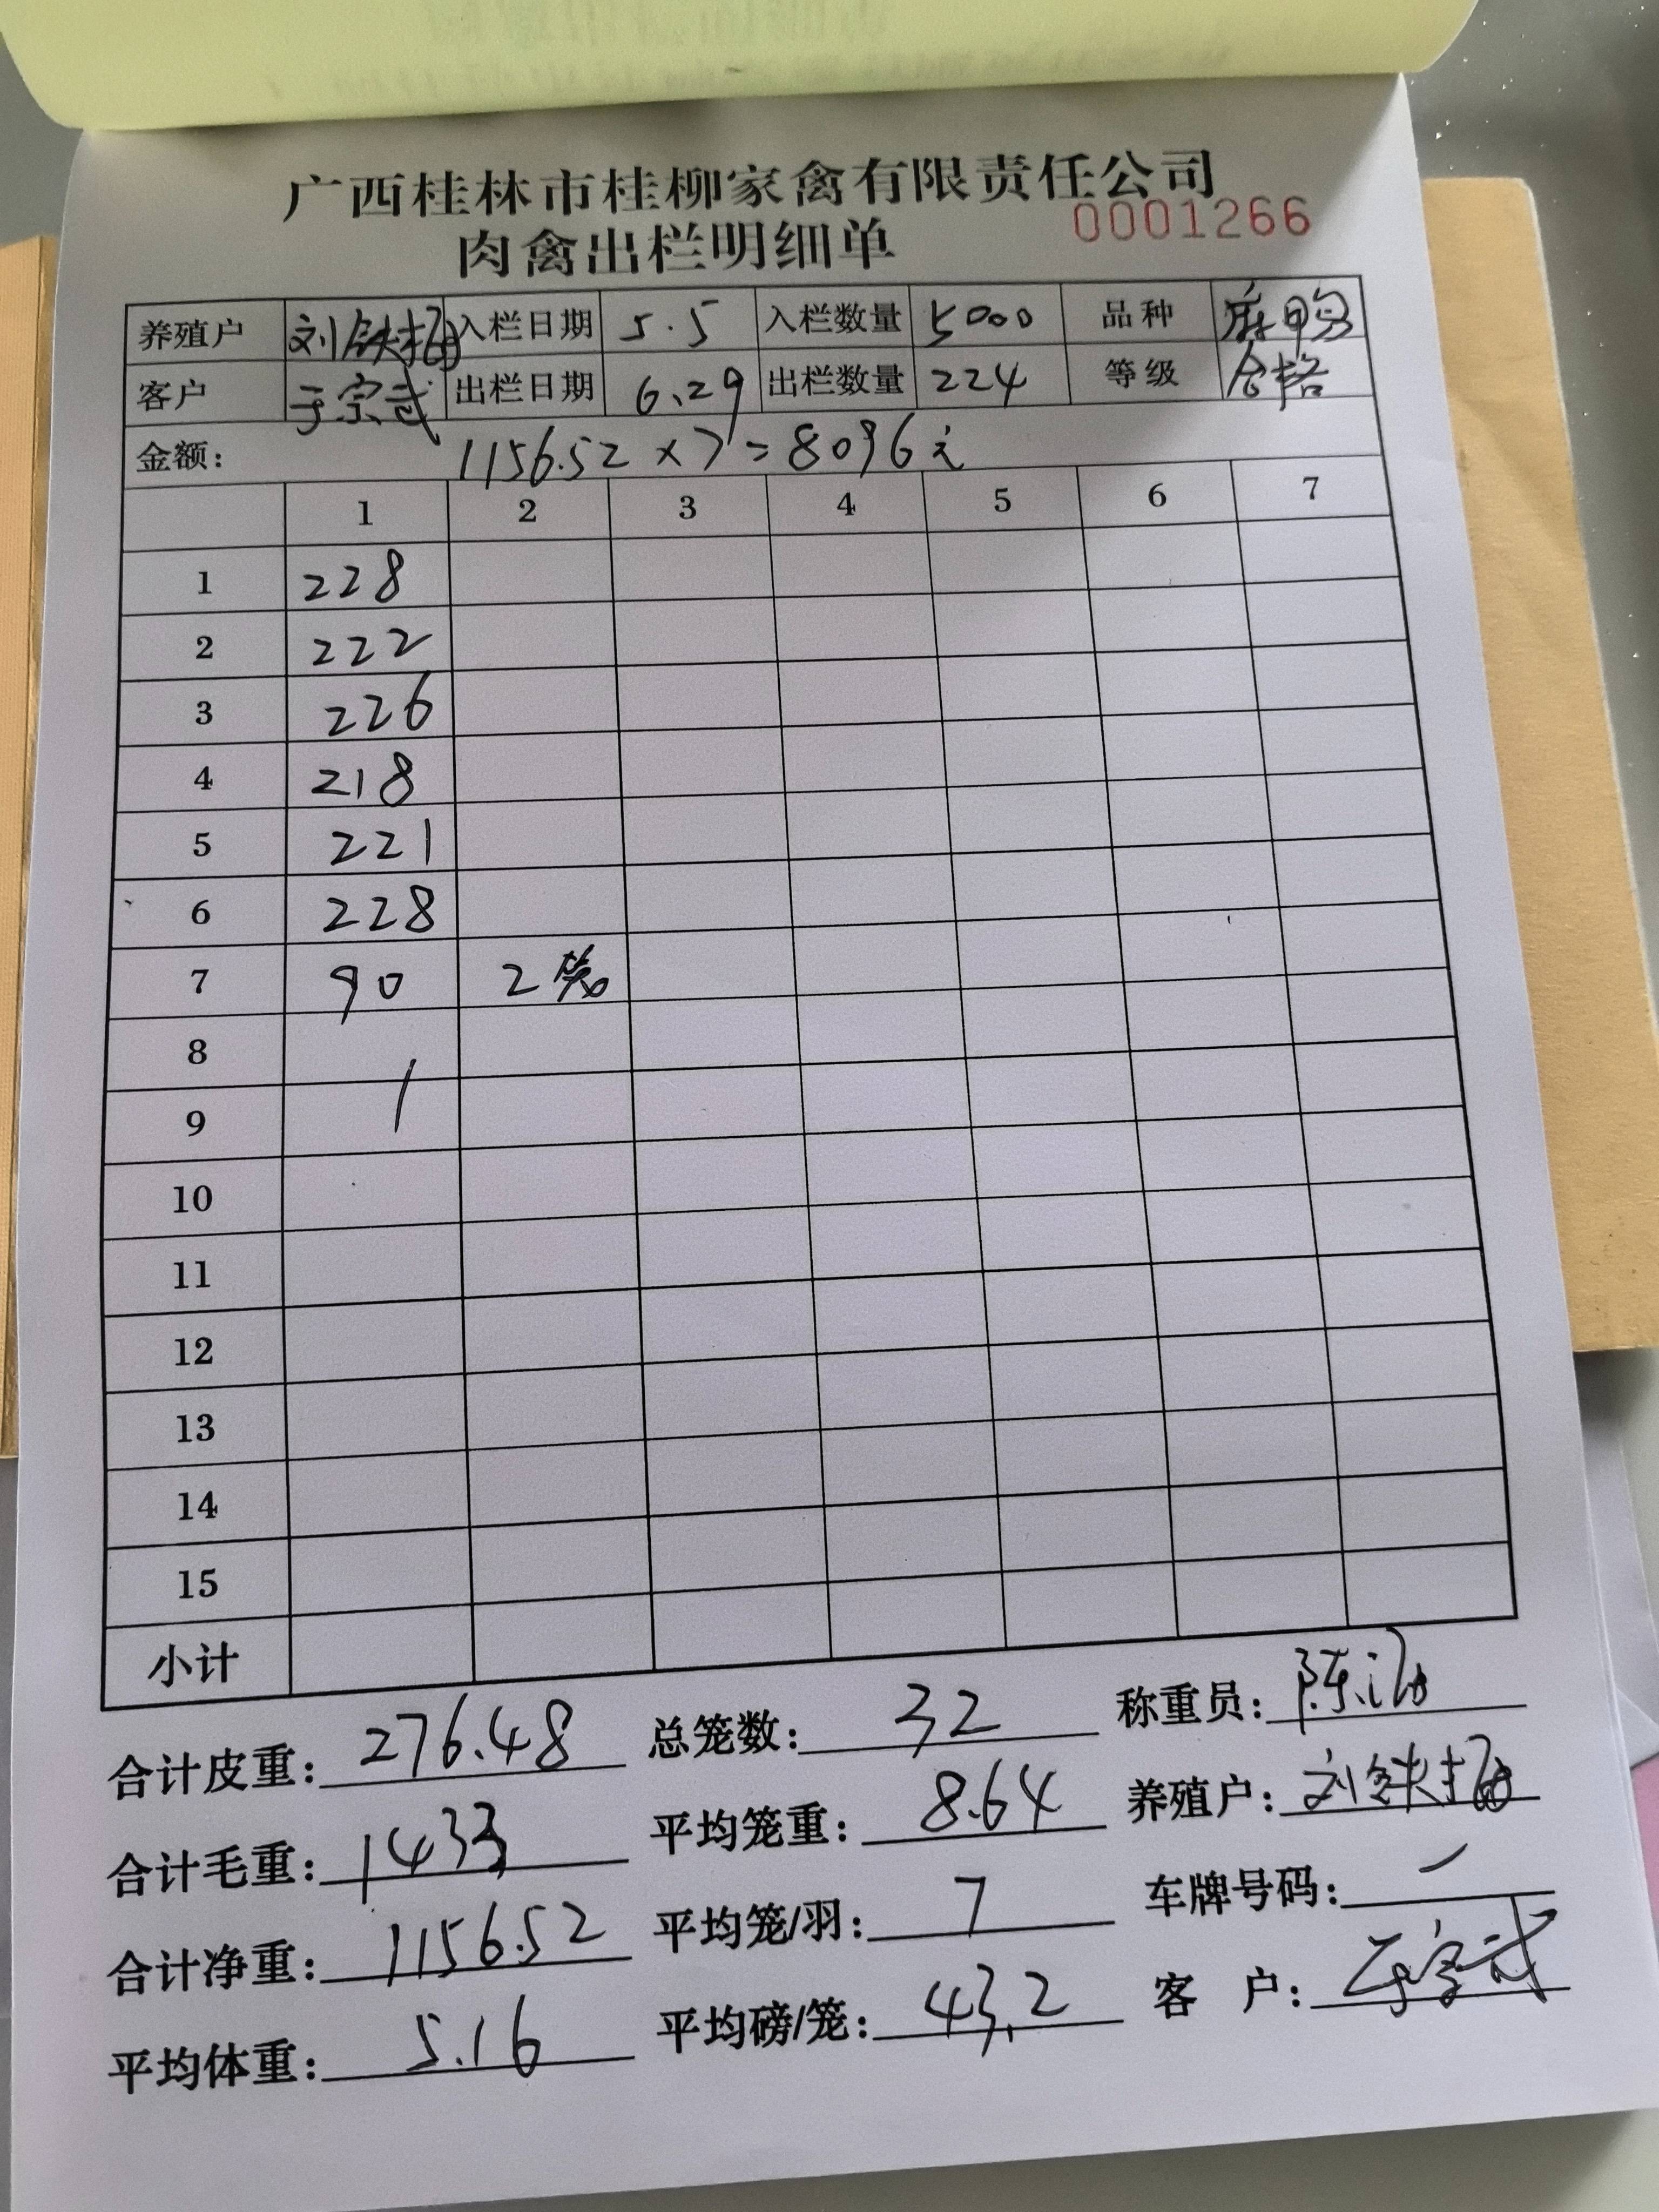 广西桂林市桂柳家禽有限责任公司
0001266
肉禽出栏明细单
养殖户 刘铁 入栏日期 5.5 入栏数量 5000 品种 麻鸭
客户 于宗武 出栏日期 6.29 出栏数量 224 等级 合格
金额: 1156.52×7=8096元
1 2 3 4 5 6 7
1 228
2 222
3 226
4 218
5 221
6 228
7 90 2笼
8
9
10
11
12
13
14
15
小计
合计皮重: 276.48 总笼数: 32 称重员: 陈
合计毛重: 1433 平均笼重: 8.64 养殖户: 刘铁
合计净重: 1156.52 平均笼/羽: 7 车牌号码:
平均体重: 5.16 平均磅/笼: 43.2 客 户: 于宗武